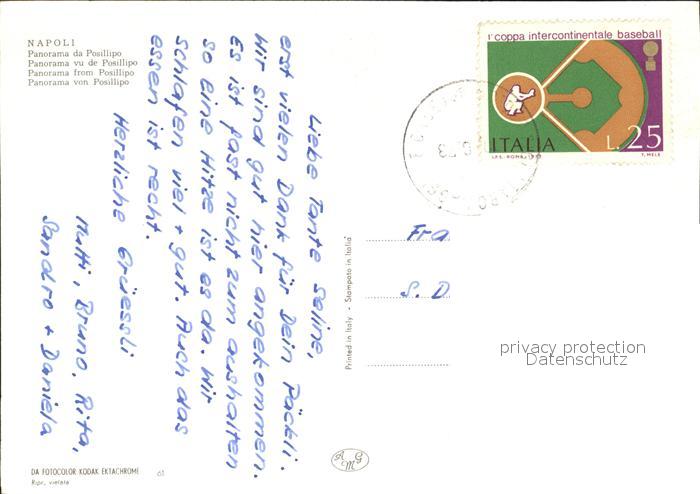 NAPOLI
Panorama da Posillipo
Panorama vu de Posillipo
Panorama from Posillipo
Panorama von Posillipo
Liebe Tante Seline,
erst vielen Dank für Dein Päckli.
Wir sind gut hier angekommen.
Es ist fast nicht zum aushalten
so eine Hitze ist es da. Wir
schlafen viel + gut. Auch das
essen ist recht.
Herzliche Grüessli
Mutti, Bruno, Rita,
Sandro + Daniela
DA FOTOCOLOR KODAK EKTACHROME 61
Ripr. vietata
Printed in Italy - Stampato in Italia
AMG
1ª coppa intercontinentale baseball
ITALIA L. 25
I.P.S. - ROMA - 1973 T. MELE
Fra
S. D
privacy protection
Datenschutz